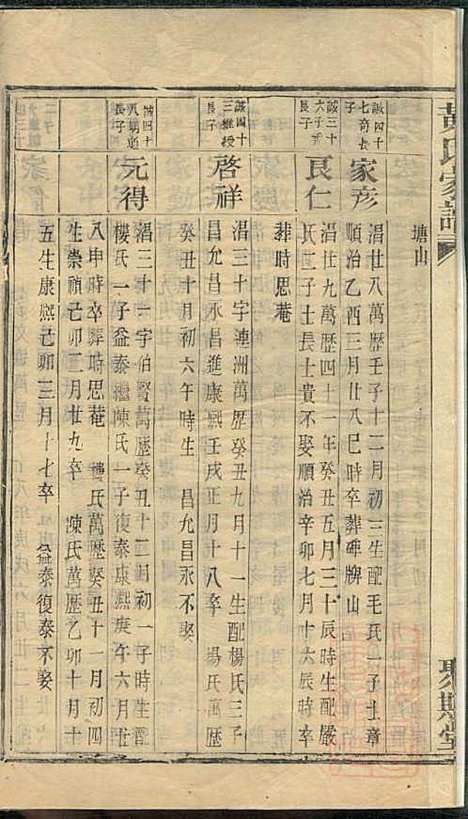 黄氏家譜
聚斯堂
塘山
誠四十
七奇長
子
家彦
湒廿八萬歷壬子十二月初三生配毛氏一子士章
順治乙酉三月廿八巳時卒葬碑牌山
誠四十
六子
長子
良仁
湒廿九萬歷四十一年癸丑五月三十辰時生配嚴
氏二子士長士貴不娶順治辛卯七月廿六辰時卒
葬時思菴
誠四十
三維授
長子
啓祥
湒三十字連洲萬歷癸丑九月十一生配楊氏三子
昌允昌永昌進康熙壬戌正月十八卒 楊氏萬歷
癸丑十月初六午時生 昌允昌永不娶
誠四十
八明
長子
元得
湒三十一字伯賢萬歷癸丑十二月初一子時生配
樓氏一子益泰繼陳氏一子復泰康熙庚午六月廿
八申時卒葬時思菴 樓氏萬歷癸丑十一月初四
生崇禎己卯二月廿九卒 陳氏萬歷乙卯十月十
五生康熙己卯三月十七卒 益泰復泰不娶